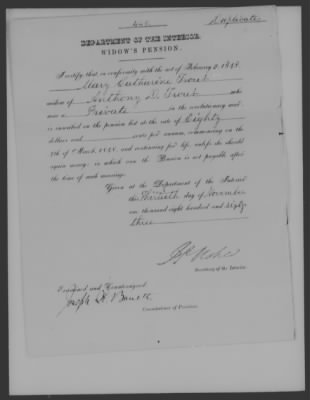 Duplicate
DEPARTMENT OF THE INTERIOR
WIDOW'S PENSION.
I certify that, in conformity with the act of February 3, 1853,
Mary Catharine Trout
widow of Anthony D. Trout who
was a Private in the revolutionary war,
is inscribed on the pension list at the rate of Eighty
dollars and cents per annum, commencing on the
of March, and continuing for life, unless she should
again marry, in which case the Pension is not payable after
the time of such marriage.
Given at the Department of the Interior
this Thirtieth day of November
one thousand eight hundred and sixty
three
Secretary of the Interior.
Examined and Countersigned
Joseph H. Barrett
Commissioner of Pensions.